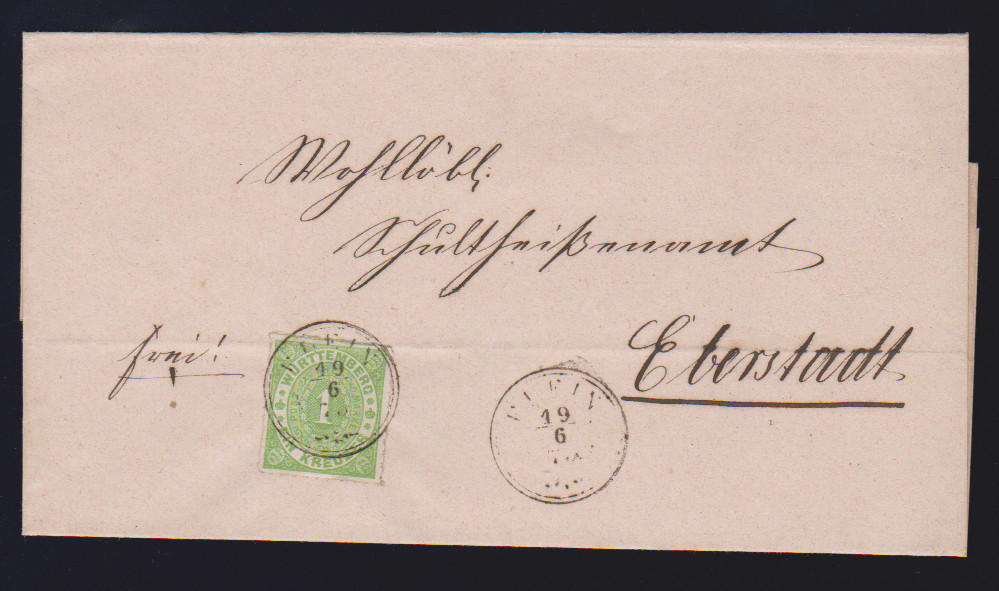 Wohllöbl:
Schultheißenamt
Eberstadt
frei!
WÜRTTEMBERG
1
EIN KREUZER
19
6
19
6